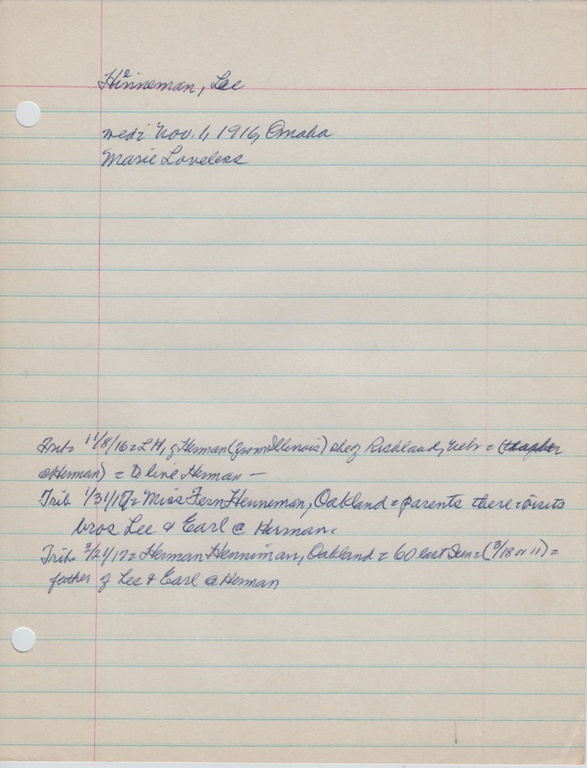 Hinneman, Lee
e
wed: Nov. 1, 1916, Omaha
Marie Loveless
Trib 11/8/16 = LH, of Herman (from Illinois) she of Richland, Nebr =
@ Herman) = to live Herman —
Trib 1/31/17 = Miss Fern Henneman, Oakland = parents there = visits
bros Lee & Earl @ Herman.
Trib 3/21/17 = Herman Henneman, Oakland = 60 last Sun = (3/18 or 11) =
father of Lee & Earl @ Herman